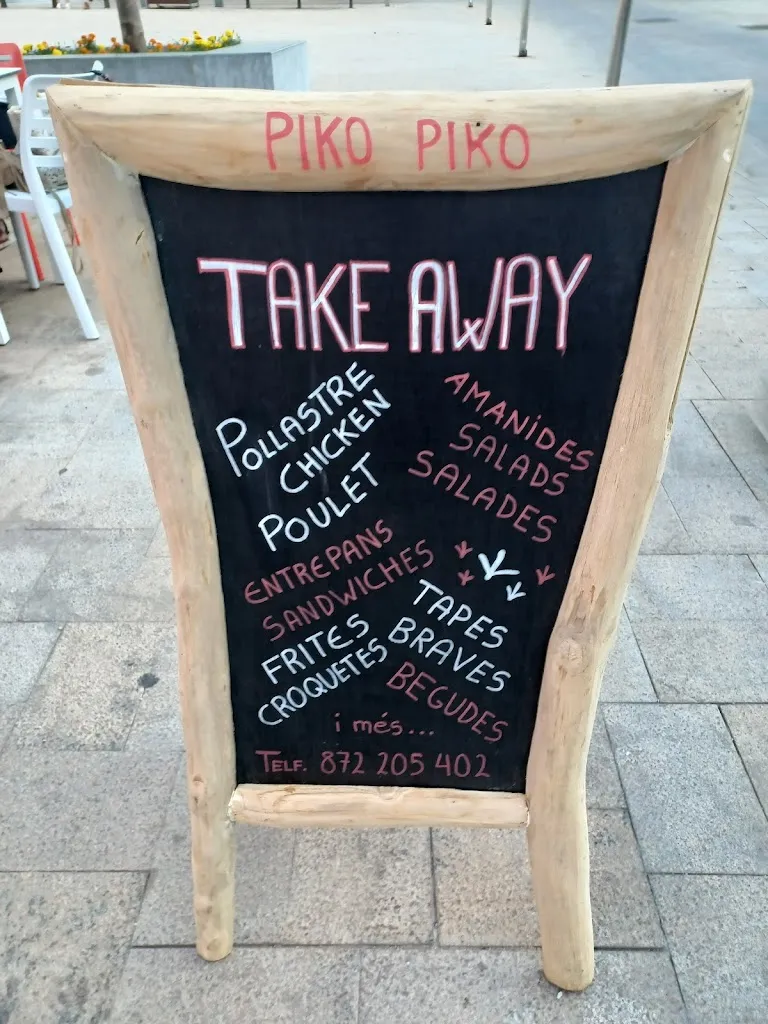 PIKO PIKO
TAKE AWAY
POLLASTRE
CHICKEN
POULET
AMANIDES
SALADS
SALADES
ENTREPANS
SANDWICHES
FRITES
CROQUETES
TAPES
BRAVES
BEGUDES
i més...
TELF. 872 205 402